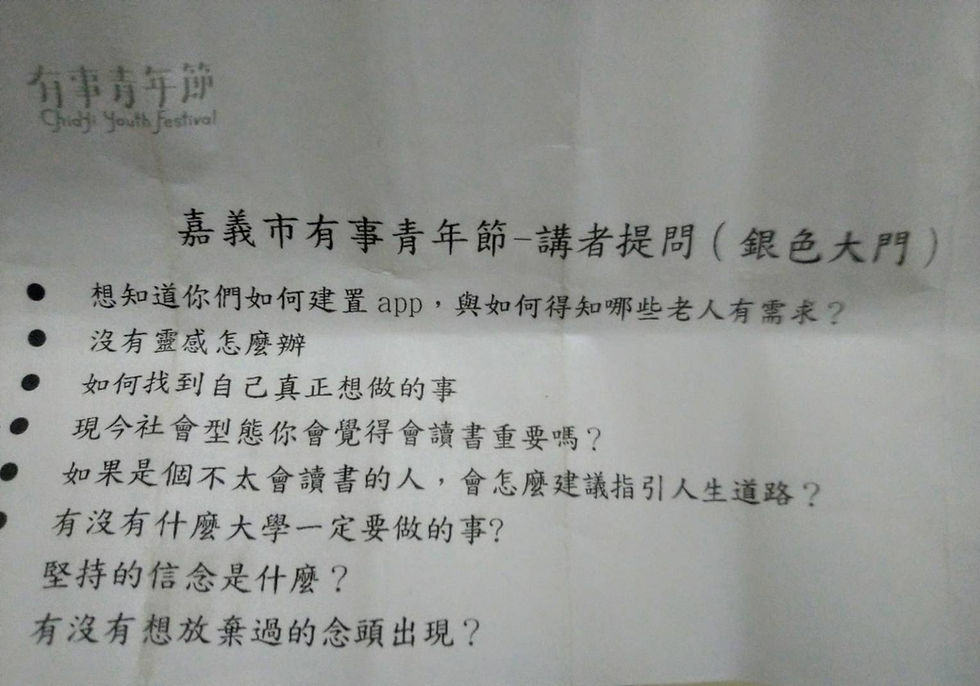 有事青年節
ChiaYi Youth Festival
嘉義市有事青年節-講者提問（銀色大門）
● 想知道你們如何建置 app，與如何得知哪些老人有需求？
● 沒有靈感怎麼辦
● 如何找到自己真正想做的事
● 現今社會型態你會覺得會讀書重要嗎？
● 如果是個不太會讀書的人，會怎麼建議指引人生道路？
● 有沒有什麼大學一定要做的事?
堅持的信念是什麼？
有沒有想放棄過的念頭出現？